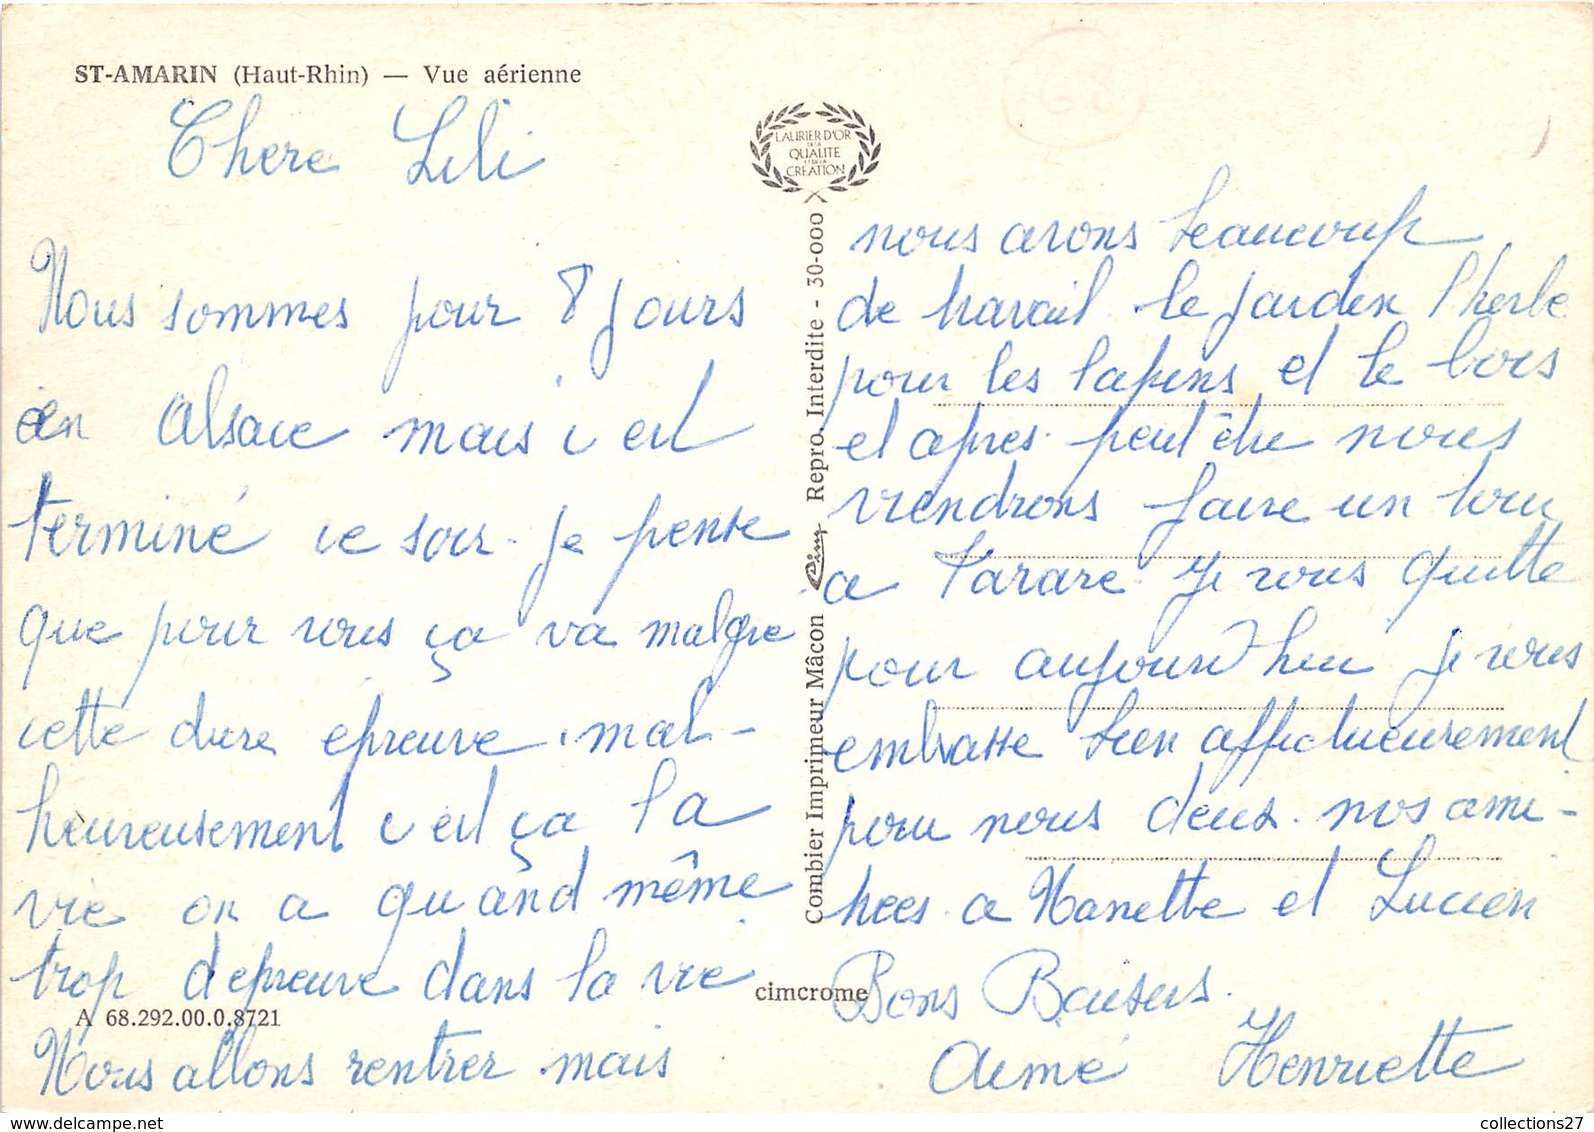 ST-AMARIN (Haut-Rhin) — Vue aérienne
Chere Lili
Nous sommes pour 8 jours
en Alsace mais c est
terminé ce soir. je pense
que pour vous ça va malgre
cette dure épreuve. mal-
heureusement c est ça la
vie on a quand même
trop d'epreuve dans la vie
A 68.292.00.0.8721
Nous allons rentrer mais
LAURIER D'OR
DE LA
QUALITE
ET DE LA
CRÉATION
Combier Imprimeur Mâcon Cim Repro. Interdite - 30-000
cimcrome
68
nous avons beaucoup
de travail. le jardin l'herbe
pour les lapins et le bois
et apres. peut être nous
viendrons faire un tour
a Tarare. je vous quitte
pour aujourd'hui je vous
embrasse bien affectueusement
pour nous deux. nos ami-
tiees. a Nanette et Lucien
Bons Baisers.
Aimé Henriette
www.delcampe.net
collections27